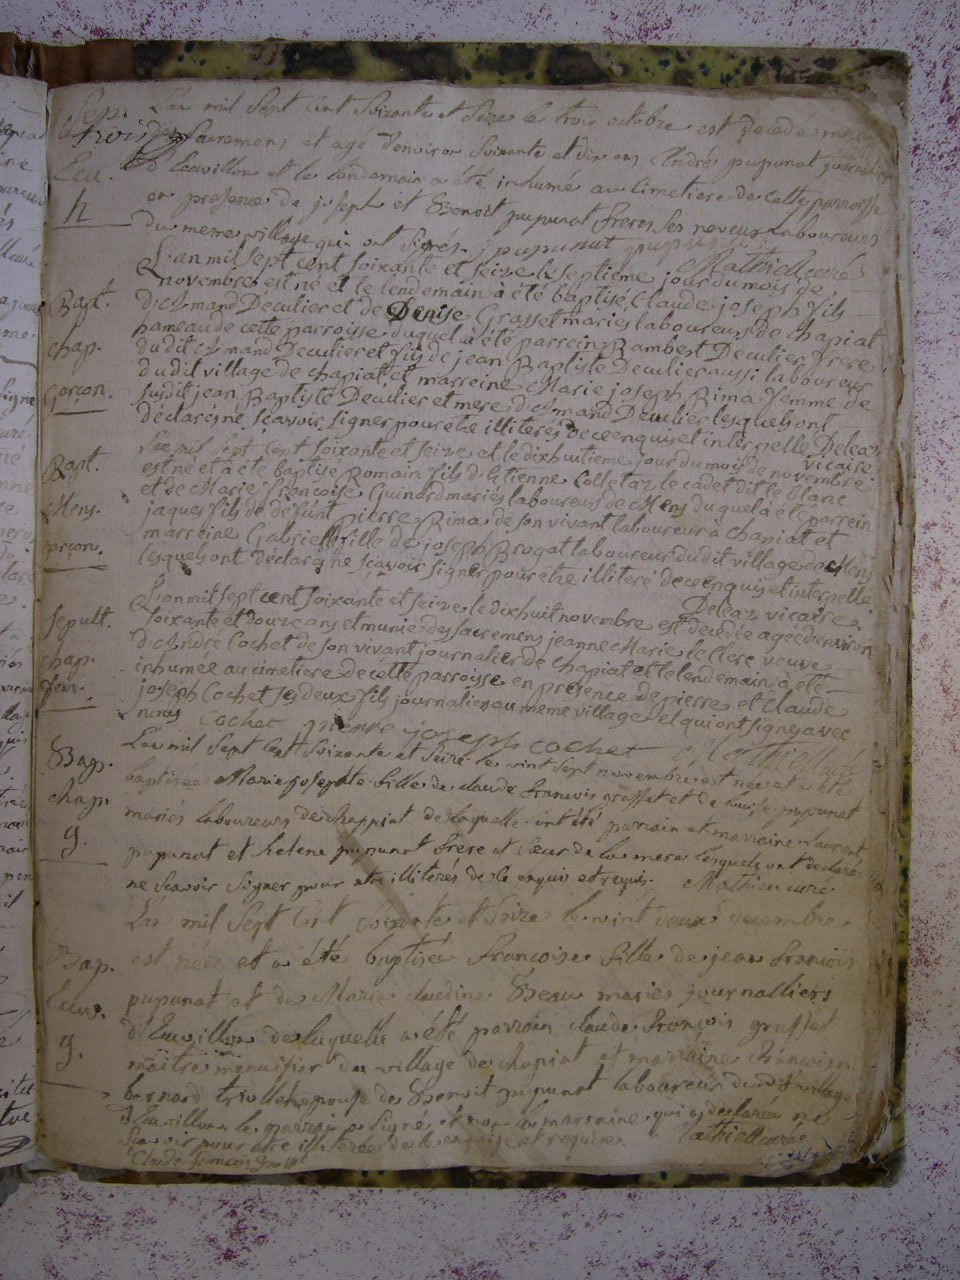 Sep.
L'an mil Sept Cent Soixante et Seize le trois octobre est decedé muni
trois des Sacremens et agé d'environ Soixante et dix ans André pupunat journalier
Euv.
d'Euvillon et le lendemain a été inhumé au Cimetiere de cette parroisse
h
en presence de joseph et Benoit pupunat freres Ses neveux Laboureurs
du meme village qui ont signés. j pupunat pupunat Mathieu curé
L'an mil sept cent soixante et seize le septieme jour du mois de
novembre est né et le lendemain à été baptisé Claude joseph fils
Bapt.
d'Armand Deculier et de Denise Grasset mariés laboureurs de chapiat
hameau de cette parroisse duquel à été parrein Rambert Deculier frere
chap.
dudit Armand Deculier et fils de jean Baptiste Deculier aussi laboureur
dudit village de chapiat, et marreine Marie joseph Rima femme de
Garcon.
susdit jean Baptiste Deculier et mere d'Armand Deculier lesquels ont
déclarés ne sçavoir signer pour etre illiterés de ce enquis et interpellé Deleaz
vicaire
L'an mil sept Cent soixante et seize et le dixhuitieme jour du mois de novembre
Bapt.
est né et a été baptisé Romain fils d'Etienne Colletaz le cadet dit le blanc
et de Marie françoise Guinard mariés laboureurs de Mens duquel à été parrein
Mens.
jaques fils de defunt pierre Rima de son vivant laboureur à chapiat et
marreine Gabrielle fille de joseph Brogat laboureur dudit village de Mens
garcon.
lesquels ont déclarés ne sçavoir signer pour etre illiteré de ce enquis et interpellé
Deleaz vicaire.
L'an mil sept cent soixante et seize le dixhuit novembre est decedée agée d'environ
Sepult.
soixante et douze ans et munie des sacremens jeanne Marie le Clerc veuve
d'André Cochet de son vivant journalier de chapiat et le lendemain à été
chap.
inhumée au cimetiere de cette parroisse en présence de pierre et Claude
fem.
joseph Cochet ses deux fils journaliers au meme village et qui ont signé avec
nous Cochet pierre joseph cochet Mathieu curé
L'an mil Sept Cent Soixante et Seize le vint Sept novembre est née et a été
Bap.
baptisée Marie josephte fille de claude françois grasset et de louise pupunat
chap.
mariés laboureurs de chappiat de laquelle ont été parrain et marraine laurent
g.
pupunat et helene pupunat frere et Sœur de la mere lesquels ont declarés
ne Scavoir Signer pour etre illiterés de ce enquis et requis. Mathieu curé
L'an mil Sept Cent Soixante et Seize le vint deux decembre
Bap.
est née et a été baptisée françoise fille de jean françois
Euv.
pupunat et de Marie claudine Beau mariés journalliers
g.
d'Euvillon de laquelle a été parrain claude françois grasset
maitre menuisier du village de chapiat et marraine francoise
bernard triollet epouse de Benoit pupunat laboureur dudit village
d'Euvillon le parrain a Signé et non la marraine qui a declarée ne
Scavoir pour etre illiterée de ce enquise et requise. Mathieu curé
Claude francois Grasset